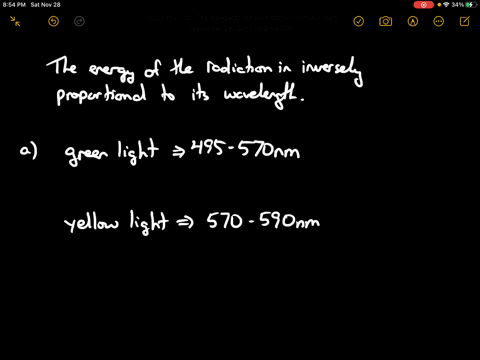 8:54 PM Sat Nov 28
34%
The energy of the radiation in inversely
proportional to its wavelength.
a) green light ⇒ 495-570nm
yellow light ⇒ 570-590nm